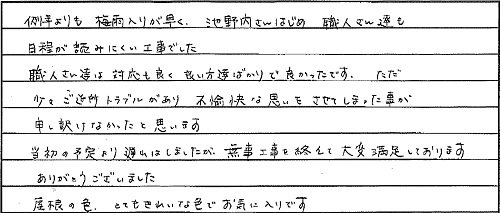 例年よりも 梅雨入りが早く、池野内さんはじめ 職人さん達も
日程が読みにくい工事でした
職人さん達は 対応も良く 良い方達ばかりで良かったです。ただ
少々ご近所トラブルがあり 不愉快な思いをさせてしまった事が
申し訳けなかったと思います
当初の予定より遅れはしましたが、無事工事を終えて大変満足しております
ありがとうございました
屋根の色、とてもきれいな色でお気に入りです